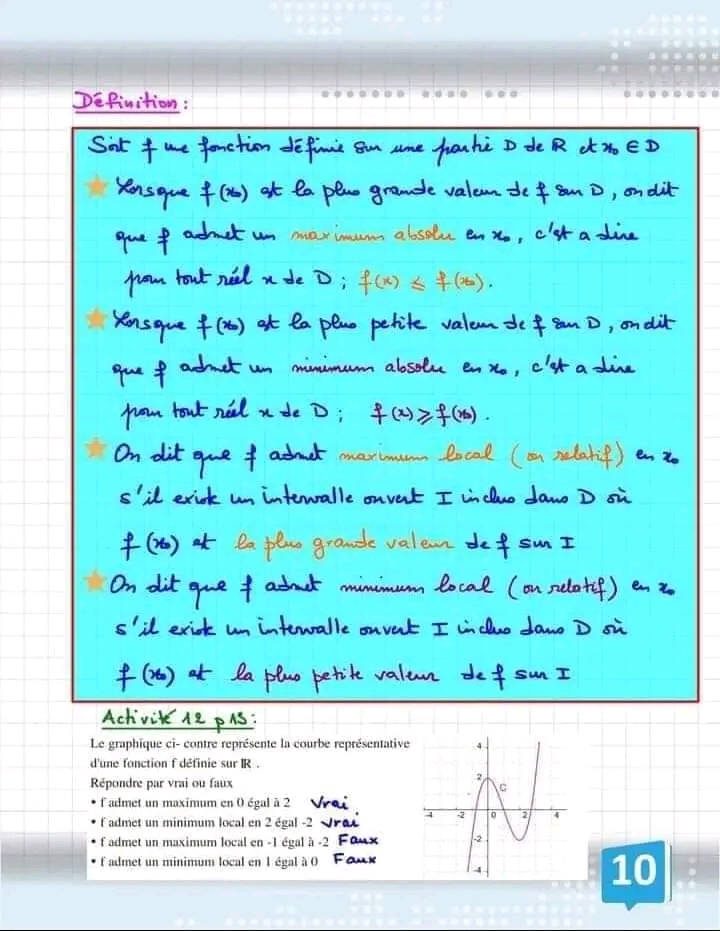 Définition :
Soit f une fonction définie sur une partie D de R et x₀ ∈ D
Lorsque f(x₀) est la plus grande valeur de f sur D, on dit
que f admet un maximum absolu en x₀, c'est a dire
pour tout réel x de D ; f(x) ≤ f(x₀).
Lorsque f(x₀) est la plus petite valeur de f sur D, on dit
que f admet un minimum absolu en x₀, c'est a dire
pour tout réel x de D ; f(x) ≥ f(x₀).
On dit que f admet maximum local (ou relatif) en x₀
s'il existe un intervalle ouvert I inclus dans D où
f(x₀) est la plus grande valeur de f sur I
On dit que f admet minimum local (ou relatif) en x₀
s'il existe un intervalle ouvert I inclus dans D où
f(x₀) est la plus petite valeur de f sur I
Activité 12 p 15 :
Le graphique ci- contre représente la courbe représentative
d'une fonction f définie sur IR .
Répondre par vrai ou faux
• f admet un maximum en 0 égal à 2 Vrai
• f admet un minimum local en 2 égal -2 Vrai
• f admet un maximum local en -1 égal à -2 Faux
• f admet un minimum local en 1 égal à 0 Faux
4
2
C
-4 -2 0 2 4
-2
-4
10